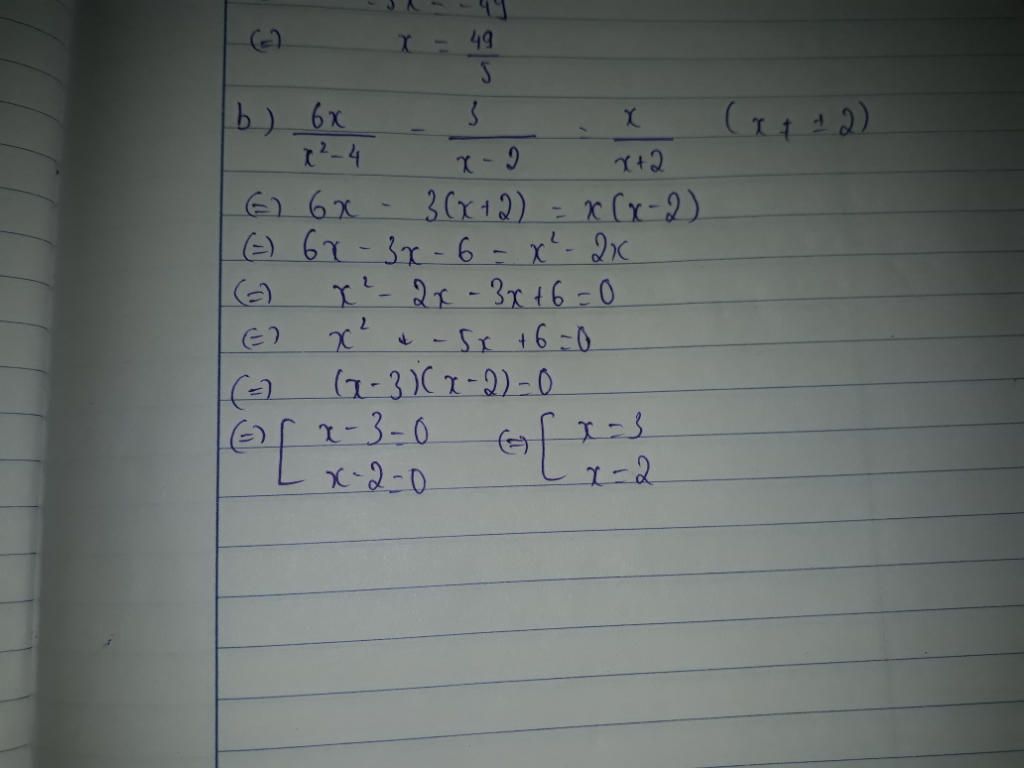 -5x = -49
(=) x = 49/5
b) 6x/(x²-4) - 3/(x-2) = x/(x+2) (x ≠ ±2)
(=) 6x - 3(x+2) = x(x-2)
(=) 6x - 3x - 6 = x² - 2x
(=) x² - 2x - 3x + 6 = 0
(=) x² + - 5x + 6 = 0
(=) (x-3)(x-2) = 0
(=) [ x-3=0 (=) [ x=3
x-2=0 x=2